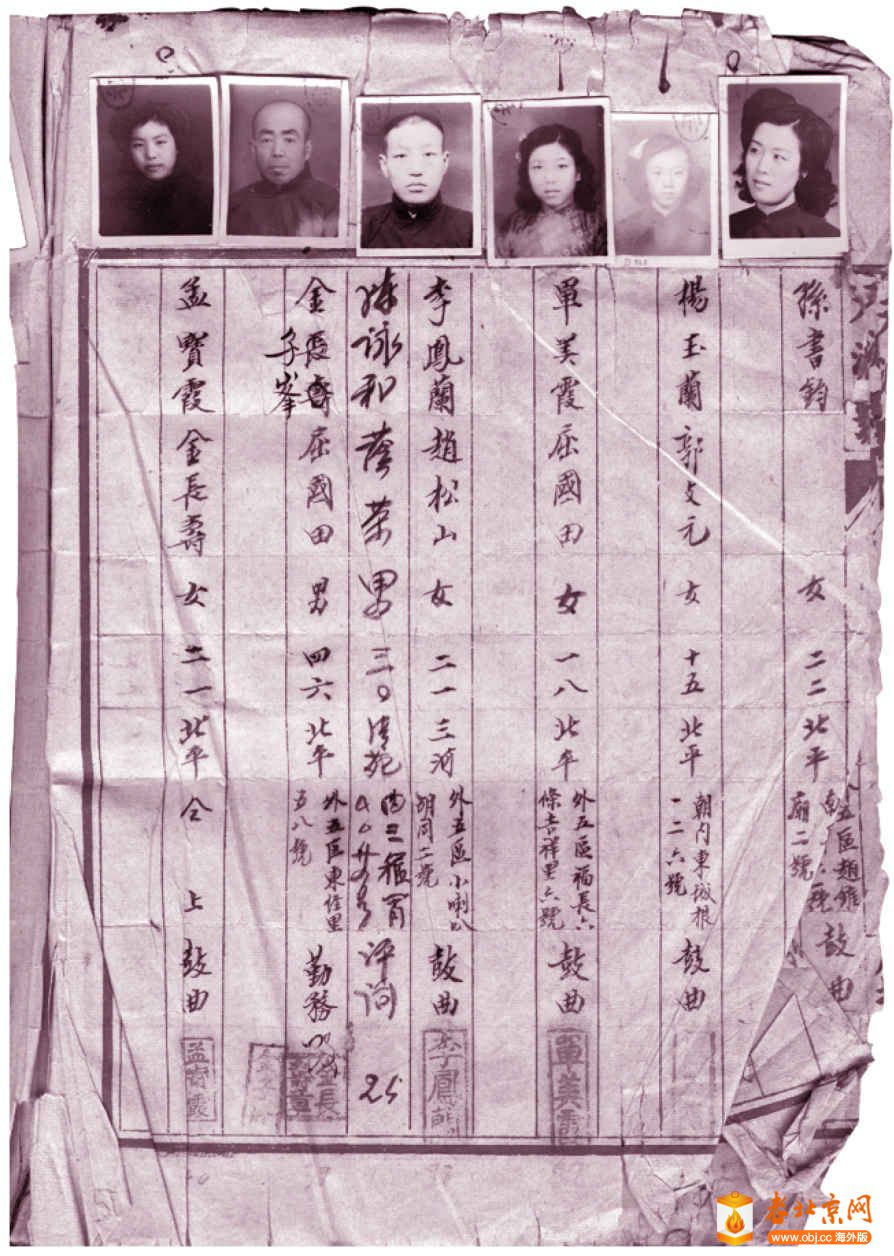 孫書鈞 女 二二 北平
廟二號
鼓曲
楊玉蘭 郭文元 女 十五 北平
朝内東城根
一二六號
鼓曲
單美霞 屈國田 女 一八 北平
外五區福長六
條吉祥里六號
鼓曲
單美霞
李鳳蘭 趙松山 女 二一 三河
外五區小喇叭
胡同二號
鼓曲
李鳳蘭
陳詠和 蔭榮 男 三〇 清苑
評詞 25
金長壽 屈國田 男 四六 北平
子峯
外五區東
五八號
勤務
金長
壽章
孟寶霞 金長壽 女 二一 北平
仝上 鼓曲
孟寶霞
老北京网
www.obj.cc 海外版